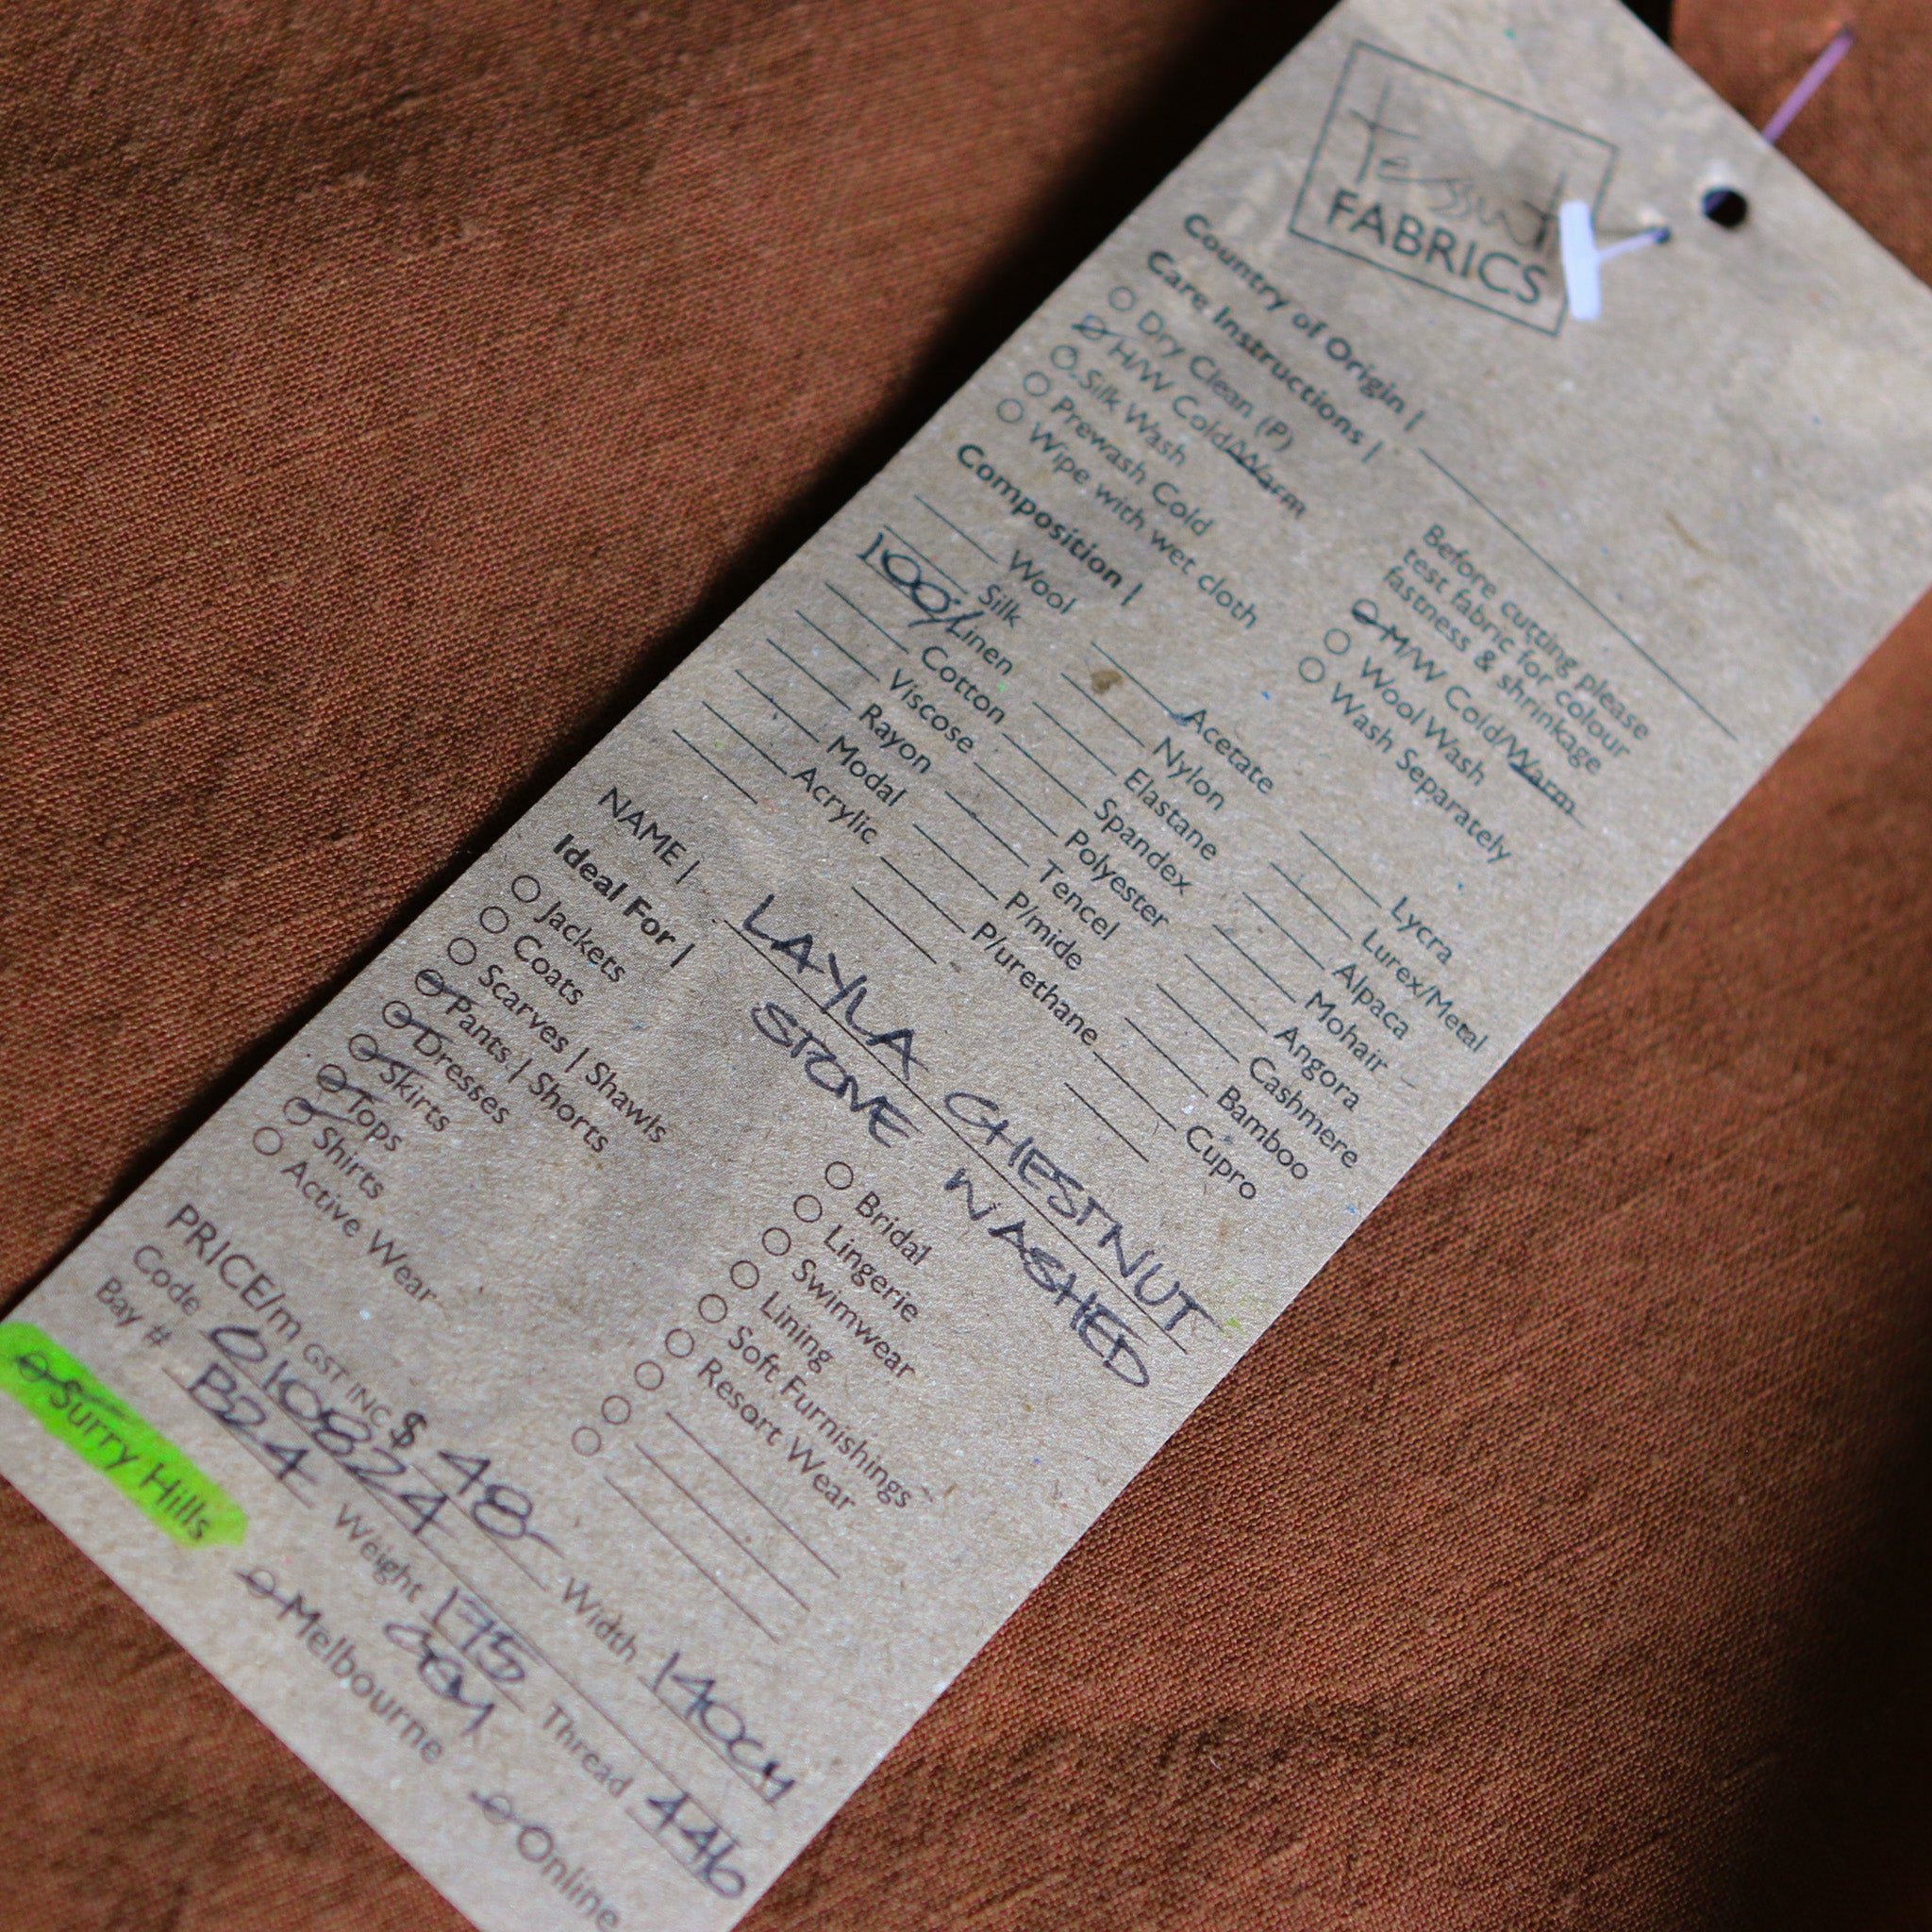 Tessuti
FABRICS
Country of Origin |
Care Instructions |
Dry Clean (P)
H/W Cold/Warm
Silk Wash
Prewash Cold
Wipe with wet cloth
Before cutting please
test fabric for colour
fastness & shrinkage
M/W Cold/Warm
Wool Wash
Wash Separately
Composition |
Wool
Silk
100% Linen
Cotton
Viscose
Rayon
Modal
Acrylic
Acetate
Nylon
Elastane
Spandex
Polyester
Tencel
P/mide
P/urethane
Lycra
Lurex/Metal
Alpaca
Mohair
Angora
Cashmere
Bamboo
Cupro
NAME | LAYLA CHESTNUT
STONE WASHED
Ideal For |
Jackets
Coats
Scarves | Shawls
Pants | Shorts
Dresses
Skirts
Tops
Shirts
Active Wear
Bridal
Lingerie
Swimwear
Lining
Soft Furnishings
Resort Wear
PRICE/m GST INC $ 48- Width 140CM
Code 0108224 Weight 175 GSM Thread 446
Bay # B24
Surry Hills Melbourne Online